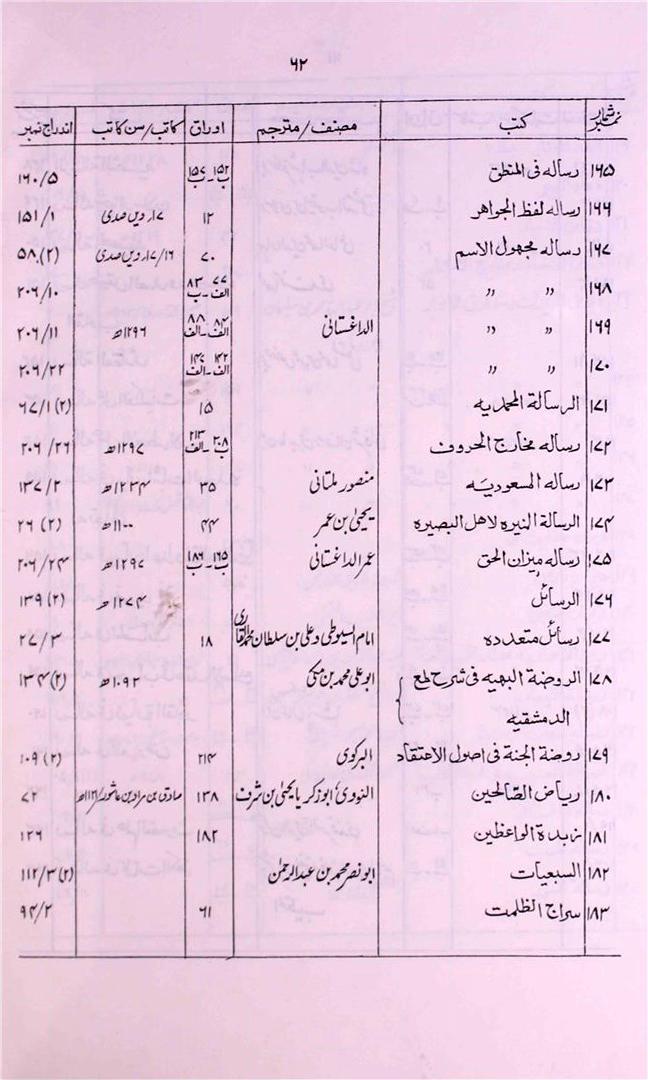 ۶۲
نمبر شمار	کتب	مصنف/مترجم	اوراق	کاتب/سن کاتب	اندراج نمبر
۱۶۵	رساله فی المنطق		۱۵۲ ب - ۱۵۷ ب		۱۶۰/۵
۱۶۶	رساله لفظ الجواهر		۱۲	۱۷ویں صدی	۱۵۱/۱
۱۶۷	رساله مجهول الاسم		۷۰	۱۶/۱۷ویں صدی	۵۸(۲)
۱۶۸	〃 〃		۷۷ الف - ۸۳ ب		۲۰۶/۱۰
۱۶۹	〃 〃	الداغستانی	۸۴ الف - ۸۸ الف	۱۲۹۶ھ	۲۰۶/۱۱
۱۷۰	〃 〃		۱۴۲ الف - الف		۲۰۶/۲۲
۱۷۱	الرسالة المحمدیه		۱۵		۶۷/۱(۲)
۱۷۲	رساله مخارج الحروف		۲۰۸ ب - ۲۱۳ الف	۱۲۹۷ھ	۲۰۶/۲۶
۱۷۳	رساله السعودیه	منصور ملتانی	۳۵	۱۲۳۴ھ	۱۳۷/۲
۱۷۴	الرسالة النیره لاهل البصیره	یحییٰ بن عمر	۴۴	۱۱۰۰ھ	۲۶(۲)
۱۷۵	رساله میزان الحق	عمر الداغستانی	۱۶۵ ب - ۱۸۶ ب	۱۲۹۷ھ	۲۰۶/۲۴
۱۷۶	الرسائل			۱۲۷۴ھ	۱۳۹(۲)
۱۷۷	رسائل متعدده	امام السیوطی و علی بن سلطان محمد القاری	۱۸		۲۷/۳
۱۷۸	الروضة البهیه فی شرح لمع	ابو علی محمد بن مکی		۱۰۹۲ھ	۱۳۴(۲)
الدمشقیه
۱۷۹	روضة الجنة فی اصول الاعتقاد	البرکوی	۲۱۴		۱۰۹(۲)
۱۸۰	ریاض الصالحین	النووی ابو زکریا یحییٰ بن شرف	۱۳۸	صادق بن مراد بن عاشور/۱۱۲۱ھ	۷۲
۱۸۱	زبدة الواعظین		۱۸۲		۱۲۶
۱۸۲	السبعیات	ابو نصر محمد بن عبد الرحمٰن			۱۱۲/۳(۲)
۱۸۳	سراج الظلمت		۶۱		۹۴/۲